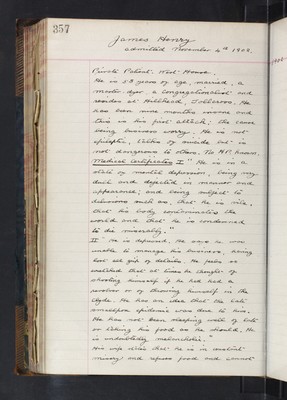 357
James Henry
admitted November 4th 1902.
1902
Private Patient. West House.
He is 58 years of age, married, a
master dyer a Congregationalist and
resides at Hillhead, He
has been some months insane and
this is his first attack; the cause
being business worry. He is not
epileptic, thinks of suicide but is
not dangerous to others.
Medical Certificates I "He is in a
state of mental depression, being very
dull and dejected in manner and
appearance; and being subject to
delusions such as, that he is vile,
that his body contaminates the
world and that he is condemned
to die miserably."
II He is depressed. He says he was
unable to manage his business having
lost all grip of details. He feels so
wretched that at times he thought of
shooting himself if he had had a
revolver or of throwing himself in the
Clyde. He has an idea that the late
smallpox epidemic was due to him.
He has not been sleeping well of late
or taking his food as he should. He
is undoubtedly melancholic."
His wife states that he is in constant
misery and refuses food and cannot